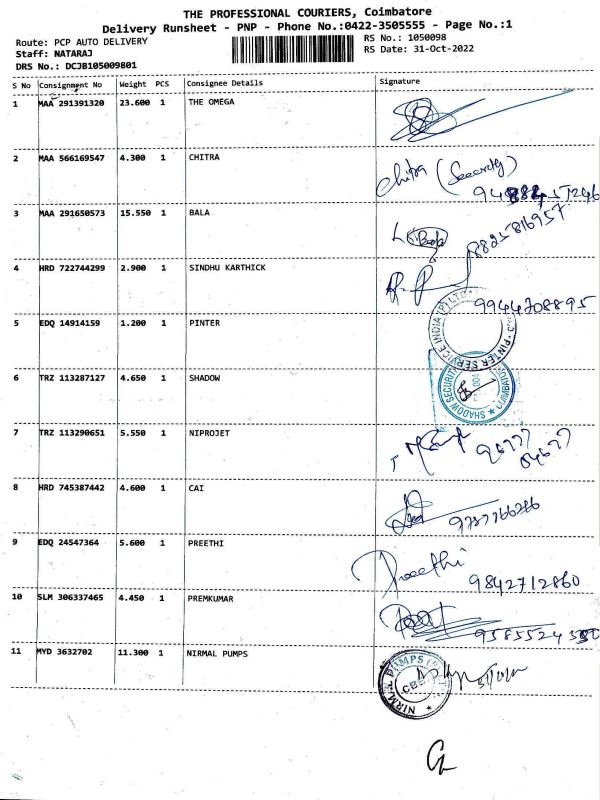 THE PROFESSIONAL COURIERS, Coimbatore
Delivery Runsheet - PNP - Phone No.:0422-3505555 - Page No.:1
Route: PCP AUTO DELIVERY
RS No.: 1050098
Staff: NATARAJ
RS Date: 31-Oct-2022
DRS No.: DCJB105009801
S No Consignment No Weight PCS Consignee Details Signature
1 MAA 291391320 23.600 1 THE OMEGA
2 MAA 566169547 4.300 1 CHITRA Chitra (Security)
3 MAA 291650573 15.550 1 BALA 8825816957
4 HRD 722744299 2.900 1 SINDHU KARTHICK
9944708895
5 EDQ 14914159 1.200 1 PINTER PINTER SERVICE INDIA (P) LTD
6 TRZ 113287127 4.650 1 SHADOW SHADOW SECURIT
7 TRZ 113290651 5.550 1 NIPROJET
8 HRD 745387442 4.600 1 CAI
9787766286
9 EDQ 24547364 5.600 1 PREETHI Preethi
9842712860
10 SLM 306337465 4.450 1 PREMKUMAR
11 MYD 3632702 11.300 1 NIRMAL PUMPS NIRMAL PUMPS